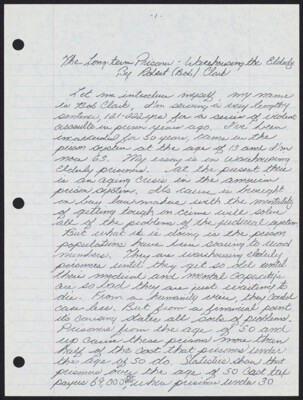 - 1 -
The Long-term Prisoner - Warehousing the Elderly
By Robert (Bob) Clark
Let me introduce myself, my name
is Bob Clark, I'm serving a very lengthy
sentence, 121-222 yrs for a series of violent
assaults in prison years ago. I've been
incarcerated for 50 years, came in the
prison system at the age of 13 and I'm
now 63. My essay is on warehousing
Elderly prisoners. At the present there
is an aging crisis in the american
prison system. Its cause is brought
on by lawmakers with the mentality
of getting tough on crime will solve
all of the problems of the judicial system.
But what it is doing is the prison
populations have been soaring to record
numbers. They are warehousing elderly
prisoners until they get so old until
their medical and mental capacity
are so bad they are just waiting to
die. From a humanity view, they could
care less. But from a financial point
its causing states all sorts of problems.
Prisoners from the age of 50 and
up cause these prisons more than
half of the cost that prisoners under
the age of 50 do. Statistics show that
prisoners over the age of 50 cost tax
payers 69,000 when prisoners under 30